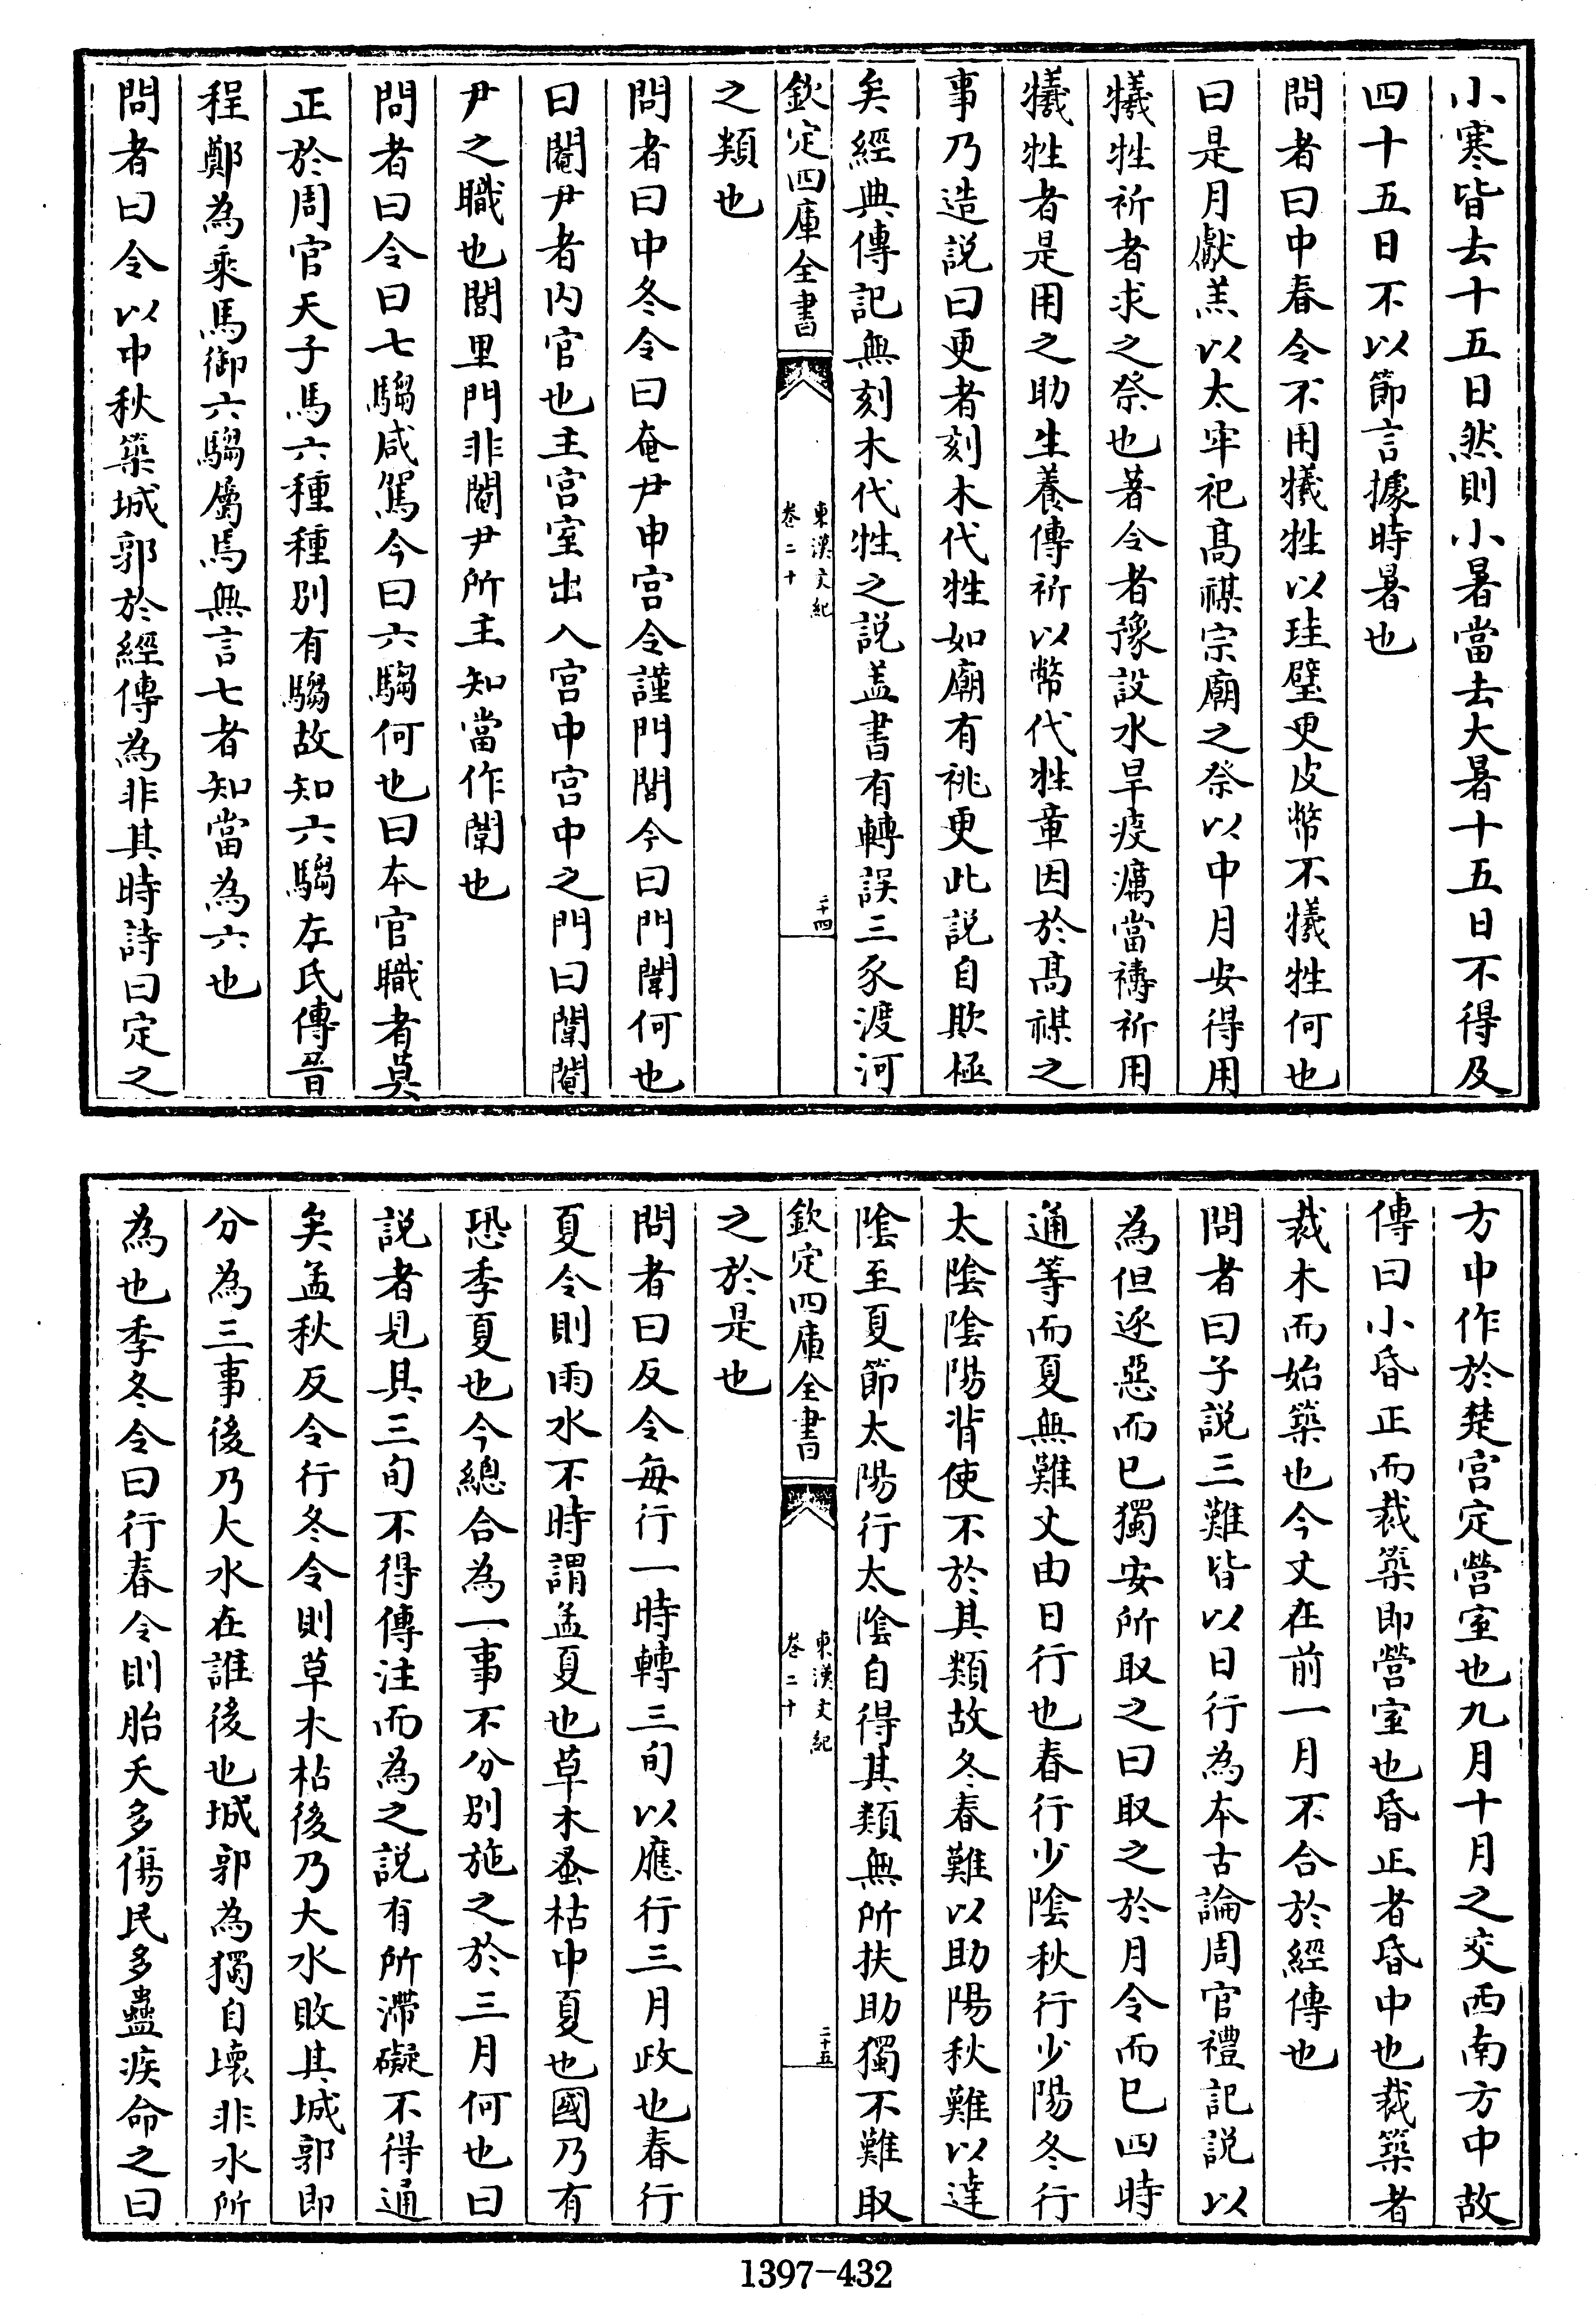 小寒皆去十五日然則小暑當去大暑十五日不得及
四十五日不以節言據時暑也
問者曰中春令不用犧牲以珪璧更皮幣不犧牲何也
曰是月獻羔以太牢祀高禖宗廟之祭以中月安得用
犧牲祈者求之祭也著令者豫設水旱疫癘當禱祈用
犧牲者是用之助生養傳祈以幣代牲章因於高禖之
事乃造說曰更者刻木代牲如廟有祧更此說自欺極
矣經典傳記無刻木代牲之說盖書有轉誤三豕渡河
欽定四庫全書
東漢文紀
卷二十
二十四
之類也
問者曰中冬令曰奄尹申宮令謹門閭今曰門闈何也
曰閹尹者内官也主宮室出入宮中宮中之門曰闈閹
尹之職也閭里門非閹尹所主知當作闈也
問者曰令曰七騶咸駕今曰六騶何也曰本官職者莫
正於周官天子馬六種種别有騶故知六騶左氏傳晉
程鄭為乘馬御六騶屬焉無言七者知當為六也
問者曰令以中秋築城郭於經傳為非其時詩曰定之
方中作於楚宮定營室也九月十月之交西南方中故
傳曰小昏正而裁築即營室也昏正者昏中也裁築者
裁木而始築也今文在前一月不合於經傳也
問者曰子說三難皆以日行為本古論周官禮記說以
為但逐惡而已獨安所取之曰取之於月令而已四時
通等而夏無難文由日行也春行少陰秋行少陽冬行
太陰陰陽背使不於其類故冬春難以助陽秋難以達
陰至夏節太陽行太陰自得其類無所扶助獨不難取
欽定四庫全書
東漢文紀
卷二十
二十五
之於是也
問者曰反令每行一時轉三旬以應行三月政也春行
夏令則雨水不時謂孟夏也草木蚤枯中夏也國乃有
恐季夏也今總合為一事不分别施之於三月何也曰
說者見其三旬不得傳注而為之說有所滯礙不得通
矣孟秋反令行冬令則草木枯後乃大水敗其城郭即
分為三事後乃大水在誰後也城郭為獨自壞非水所
為也季冬令曰行春令則胎夭多傷民多蠱疾命之曰
1397-432